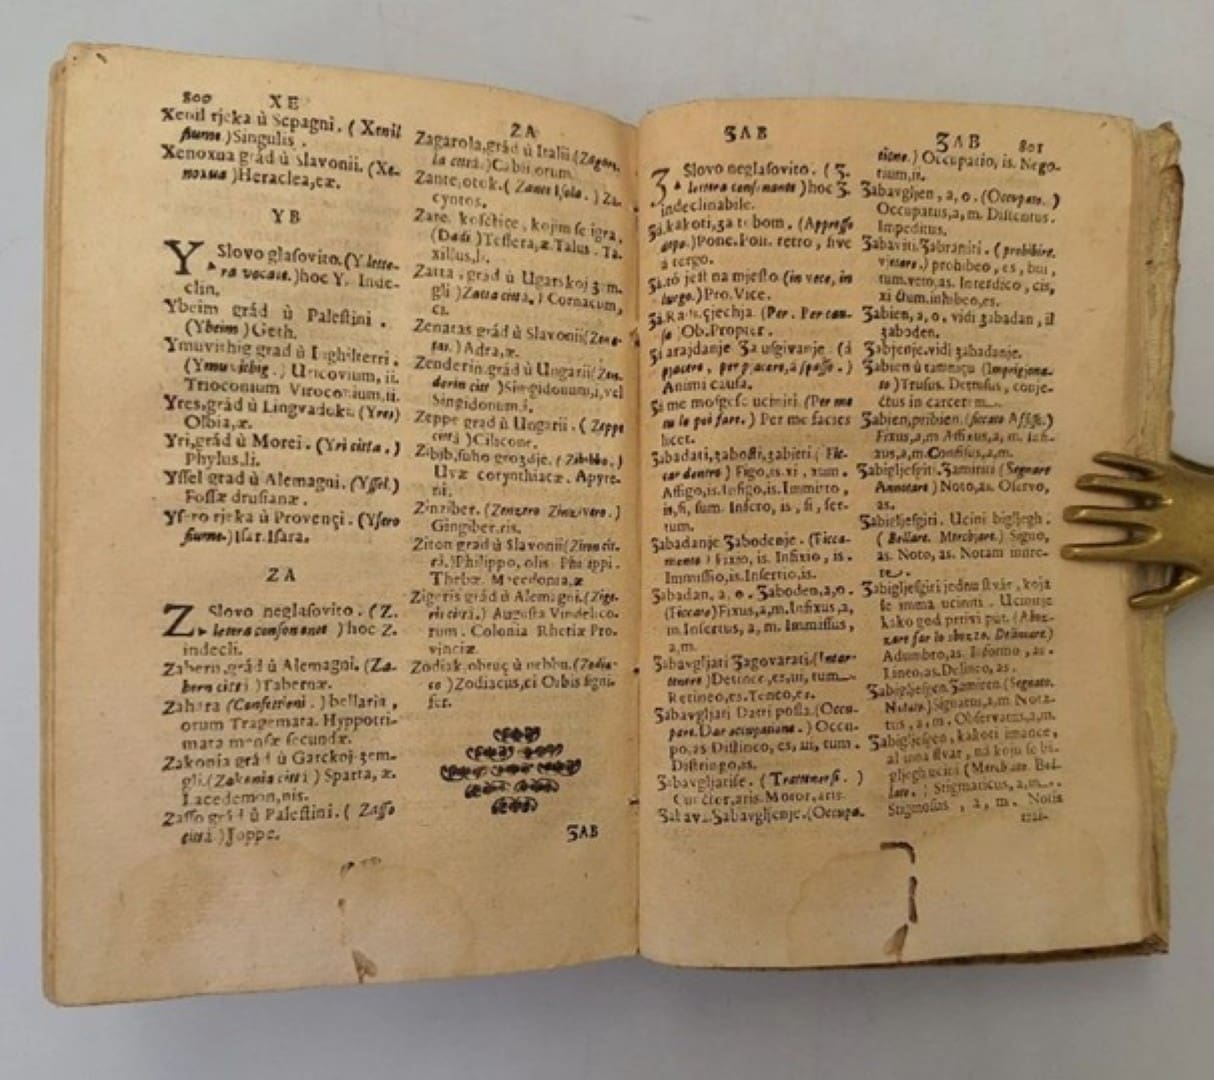 800 XE
Xenil rjeka ù Sspagni. (Xenil
fiume.)Singulis.
Xenoxua grád ù Slavonii. (Xe-
noxua)Heraclea,eæ.
YB
Y Slovo glasovito.(Y lette-
ra vocale.)hoc Y. Inde-
clin.
Ybeim grád ù Palestini.
(Ybeim)Geth.
Ymuvithig grad ù Inghilterri.
(Ymuvithig.) Uricovium, ii.
Trioconium Viroconium,ii.
Yres,grád ù Lingvadoki. (Yres)
Olbia,æ.
Yri,grád ù Morei. (Yri citta.)
Phylus,li.
Yssel grad ù Alemagni. (Yssel.)
Fossæ drusianæ.
Ysero rjeka ù Provençi. (Ysero
fiume.)Isar.Isara.
ZA
Z Slovo neglasovito. (Z.
lettera consonante)hoc Z.
indecli.
Zabern,grád ù Alemagni. (Za-
bern città)Tabernæ.
Zahara (Confettioni.) bellaria,
orum Tragemata. Hyppotri-
mata mensæ secundæ.
Zakonia grád ù Garckoj ʒem-
gli.(Zakonia città) Sparta, æ.
Lacedemon,nis.
Zasso grád ù Palestini. (Zasso
città.)Joppe.
ZA
Zagarola,grád ù Italii.(Zagaro-
la città.)Cabii,orum.
Zante,otok. (Zante Isola.) Za-
cyntos.
Zare, kosctiçe, kojim se igra,
(Dadi)Tessera,æ.Talus. Ta-
xillus,li.
Zatta, grád ù Ugarskoj ʒem-
gli)Zatta città.) Cornacum,
ci.
Zenaras grád ù Slavonii(Zena-
ras.) Adra,æ.
Zenderin,grád ù Ungarii(Zen-
derin citt)Singidonum,i,vel
Singidonum,i.
Zeppe grád ù Ungarii. (Zeppe
città)
Zibib,suho groʒdje. (Zibibbo.)
Uvæ corynthiacæ. Apyre-
ni.
Zinziber. (Zenzero Zinzivero.)
Gingiber,ris.
Ziton grád ù Slavonii(Ziton cit-
tà.)Philippo,olis Philippi.
Thebæ Macedonia,æ
Zigeris grád ù Alemagni.(Zige-
ris città.) Augusta Vindelico-
rum. Colonia Rhetiæ Pro-
vinciæ.
Zodiak,obruç ù nebbu.(Zodia-
co)Zodiacus,ci Orbis signi-
fer.
ƷAB
ƷAB
Ʒ Slovo neglasovito. (Ʒ.
lettera consonante)hoc Ʒ.
indeclinabile.
Ʒá,kakoti,ʒa tobom. (Appresso
dopo.)Pone.Post. retro, sive
a tergo.
Ʒá,tó jest na mjesto (in vece, in
luogo.)Pro.Vice.
Ʒá. (Per. Per cau-
sa)Ob.Propter.
Ʒá arajdanje Ʒa usgivanje. (á
piacere, per piacere,à spasso.)
Animi causa.
Ʒá me mosgese uciniti. (Per me
tu lo poi fare.) Per me facies
licet.
Ʒabadati,ʒabosti,ʒabieti (Fic-
car dentro) Figo,is,xi, xum.
Affigo,is.Infigo,is.Immitto,
is,si, sum. Insero, is, si, ser-
tum.
Ʒabadanje Ʒabodenje. (Ficca-
mento) Fixio, is. Infixio, is.
Immissio,is.Insertio,is.
Ʒabadan, a, o. Ʒaboden,a,o.
(Ficcato)Fixus,a,m.Infixus,a,
m.Insertus, a, m. Immissus,
a,m.
Ʒabavgljati Ʒagovarati.(Intar-
tenere)Detinee,es,ui, tum
Retineo,es.Teneo,es.
Ʒabavgljati Datti posla.(Occu-
pare.Dar occupatione.) Occu-
po,as Distineo, es, ui, tum.
Distringo,is.
Ʒabavgljatise. (Trattenersi.)
Cunctor,aris.Moror,aris.
Ʒabava.Ʒabavgljenje.(Occupa-
ƷAB 801
tione.) Occupatio, is. Nego-
tium,ii.
Ʒabavgljen, a, o. (Occupato.)
Occupatus,a, m. Distentus.
Impeditus.
Ʒabaviti.Ʒabraniti. (prohibire.
vietare.) prohibeo, es, bui,
tum.veto,as. Interdico, cis,
xi ctum.inhibeo,es.
Ʒabien, a, o. vidi ʒabadan, il
ʒaboden.
Ʒabjenje.vidi ʒabadanje.
Ʒabien ù tamniçu (Imprigiona-
to)Trusus. Detrusus, conje-
ctus in carcerem.
Ʒabien,pribien.(ficcato Affisso.)
Fixus,a,m Affixus,a, m. Infi-
xus,a,m.Confixus,a,m.
Ʒabigljesgiti.Ʒamiriti (Segnare
Annotare)Noto,as. Oservo,
as.
Ʒabigljesgiti. Ucini bigljegh.
(Bollare. Merchiare.) Signo,
as. Noto, as. Notam inure-
re.
Ʒabigljesgiti jednu stvár, koja
se imma uciniti. Ucinije
kako god prrivi put. (Aboz-
zare far lo sbozzo. Delineare.)
Adumbro,as. Informo, as.
Lineo,as.Delineo,as.
Ʒabigljesgen.Ʒamiren.(Segnato.
Notato.)Signatus,a,m. Nota-
tus, a, m. Observatus,a,m.
Ʒabigljesgen, kakoti imance,
al inna stvar, ná koju se bi-
gljeghuciní (Merchato. Bol-
lato.) Stigmaticus, a, m.
Stigmosus, a, m. Notis